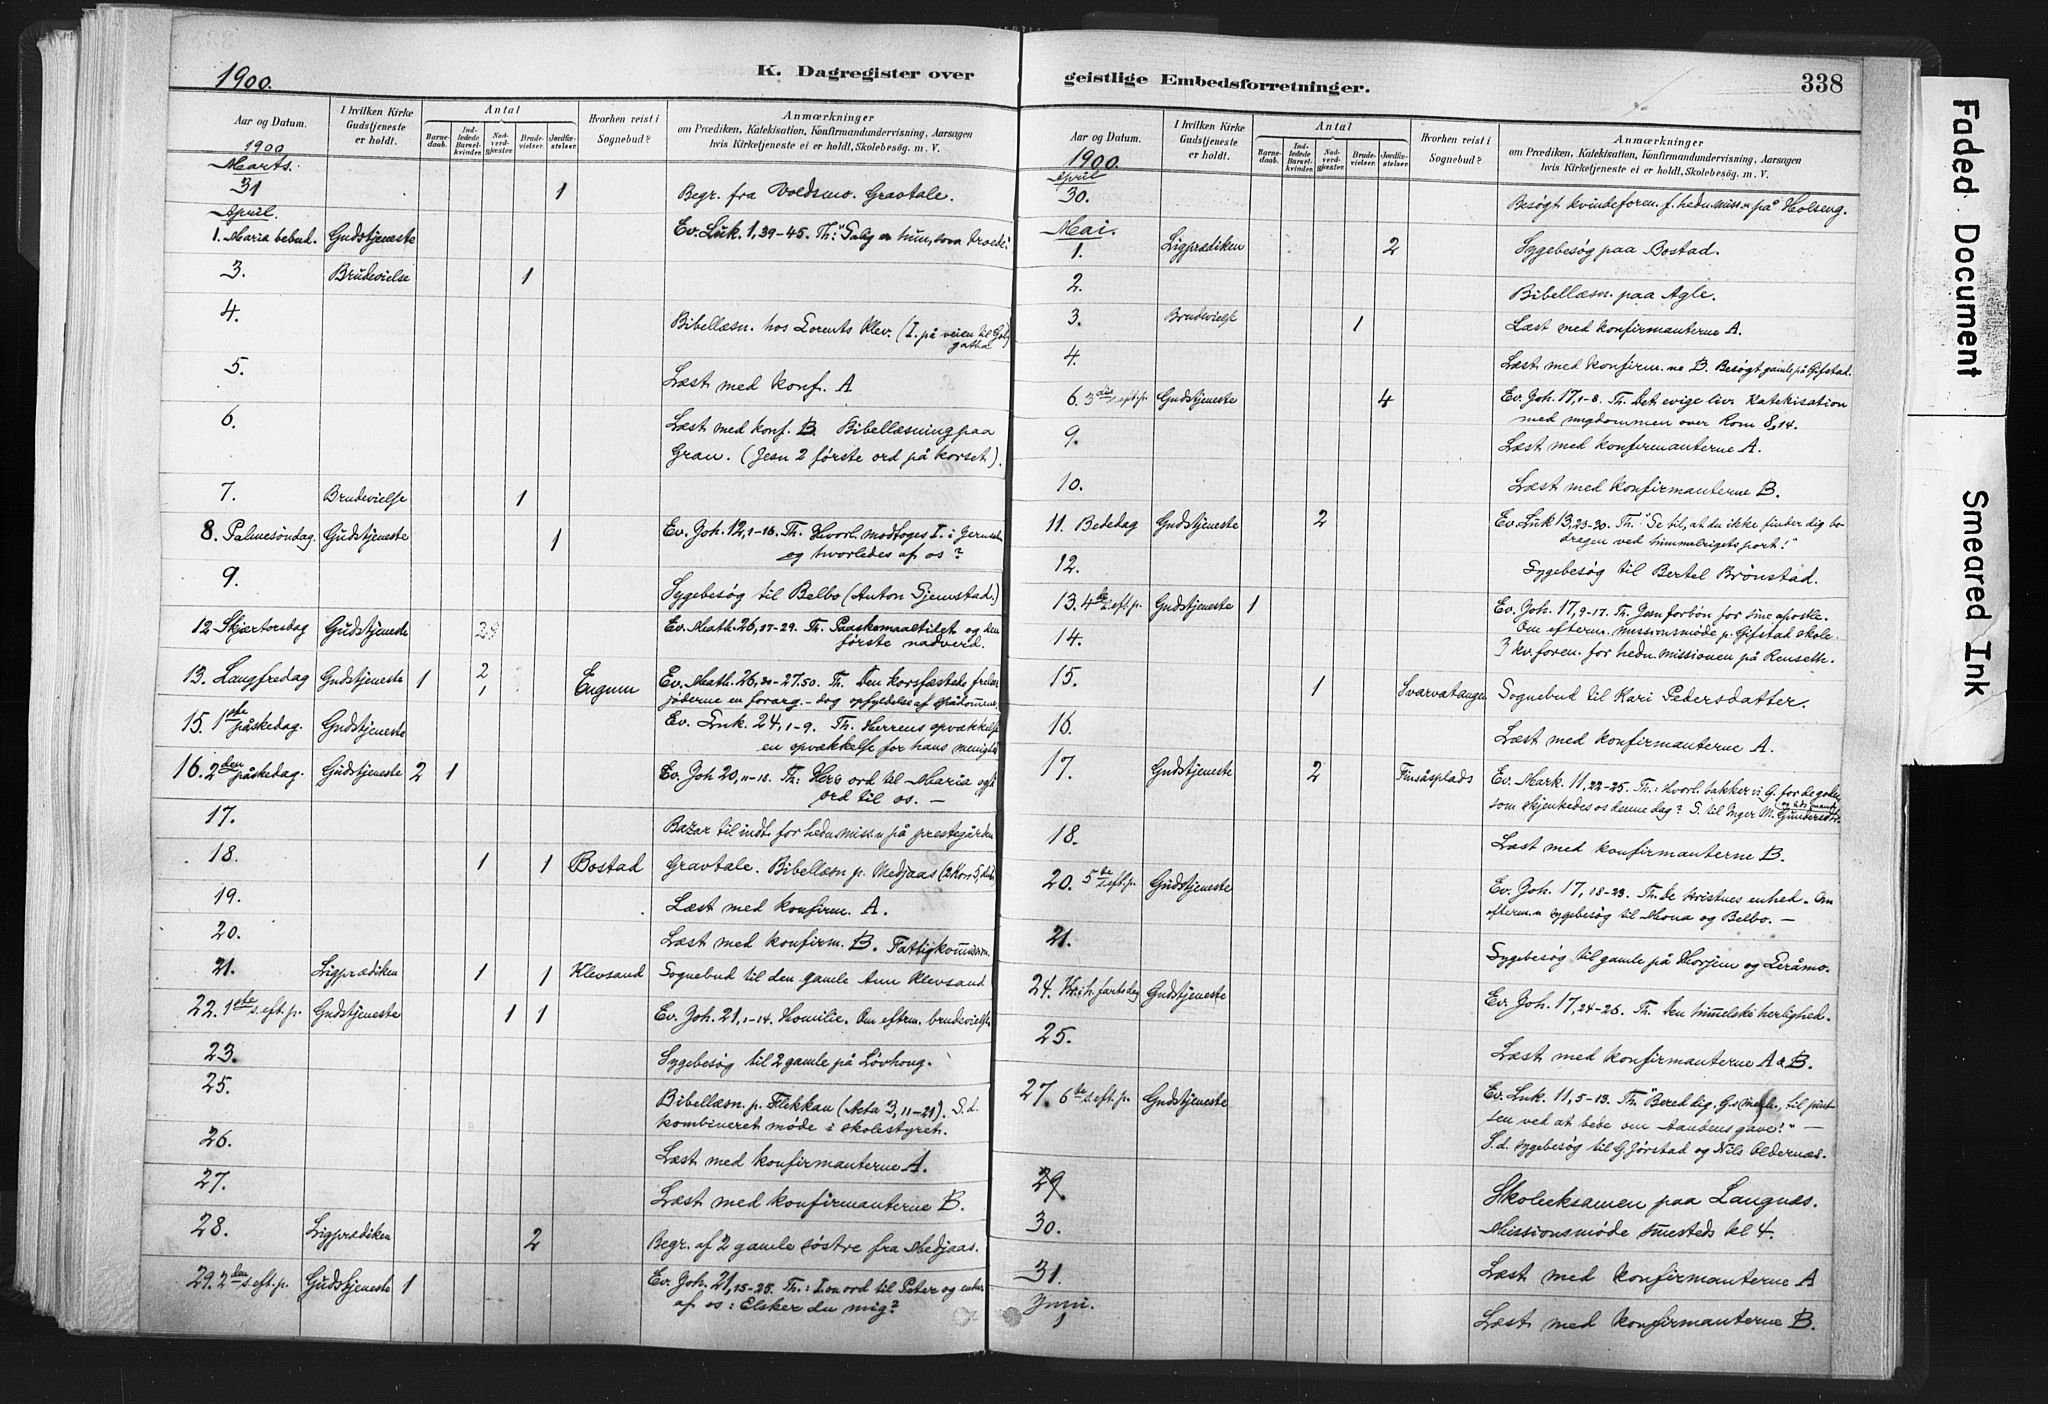 1900.
K. Dagregister over
Aar og Datum.
I hvilken Kirke Gudstjeneste er holdt.
Antal
Barnedaab.
Indledede Barselkvinder.
Nadverdgjæster.
Brudevielser.
Jordfæstelser.
Hvorhen reist i Sognebud?
Anmærkninger
om Prædiken, Katekisation, Konfirmandundervisning, Aarsagen
hvis Kirketjeneste ei er holdt, Skolebesög. m. V.
1900
Marts.
31 1 Begr. fra Voldsmo. Gravtale.
April.
1. Maria bebud. Gudstjeneste Ev. Luk. 1,39-45. Th: "Salig er hun, som troede"
3. Brudevielse 1
4. Bibellæsn. hos Lorents Klev. (I. på veien til Gol-
gatha
5. Læst med konf. A
6. Læst med konf. B. Bibellæsning paa
Gran. (Jesu 2 förste ord på korset).
7. Brudevielse 1
8. Palmesöndag. Gudstjeneste 1 Ev. Joh. 12,1-16. Th. Hvorl. modtoges I. i Jerusalem
og hvorledes af os?
9. Sygebesög til Belbo (Anton Gjemstad.)
12 Skjærtorsdag Gudstjeneste Ev. Math. 26,17-29. Th. Paaskemaaltidet og den
förste nadverd.
13. Langfredag Gudstjeneste 1 2
1 Ev. Math. 26, -27.50. Th. Den korsfæstede frelser
jöderne en forarg. - dog opfyldelse af spådomme.
15. 1ste påskedag. Gudstjeneste Ev. Luk. 24,1-9. Th. Herrens opvækkelse
en opvækkelse for hans menighed
16. 2den påskedag. Gudstjeneste 2 1 Ev. Joh 20,11-18. Th: Hers ord til Maria og
ord til os. -
17. Bazar til indt. for hedn. miss.n på prestegården
18. 1 1 Bostad Gravtale. Bibellæsn p. Medjaas (2 Kor. 5,
19. Læst med konfirm. A.
20. Læst med konfirm. B. Fattigkommission.
21. Ligprædiken 1 1 Klevsand Sognebud til den gamle Ann Klevsand
22. 1ste s. eft. p. Gudstjeneste 1 1 Ev. Joh. 21,1-14. Homilie. Om eftrm. brudevielse
23. Sygebesög til 2 gamle på Lövhoug.
25. Bibellæsn. p. Flekkan (Acta 3,11-21). S. d.
kombineret möde i skolestyret.
26. Læst med konfirmanterne A.
27. Læst med konfirmanterne B.
28. Ligprædiken 2 Begr. af 2 gamle söstre fra Medjaas.
29. 2den s. eft. p. Gudstjeneste 1 Ev. Joh. 21,15-25. Th.: I.s ord til Peter og enhver
af os: Elsker du mig?
geistlige Embedsforretninger.
338
Aar og Datum.
I hvilken Kirke Gudstjeneste er holdt.
Antal
Barnedaab.
Indledede Barselkvinder.
Nadverdgjæster.
Brudevielser.
Jordfæstelser.
Hvorhen reist i Sognebud?
Anmærkninger
om Prædiken, Katekisation, Konfirmandundervisning, Aarsagen
hvis Kirketjeneste ei er holdt, Skolebesög. m. V.
1900.
April
30. Besögt kvindeforen. f. hedn. miss.n på Holseng.
Mai.
1. Ligprædiken 2 Sygebesög paa Bostad.
2. Bibellæsn. paa Agle.
3. Brudevielse 1 Læst med konfirmanterne A.
4. Læst med konfirm. ne B. Besögt gamle på Gifstad.
6. 3die s. eft. p. Gudstjeneste 4 Ev. Joh. 17,1-8. Th. Det evige liv. Katekisation
med ungdommen over Rom 8,14.
9. Læst med konfirmanterne A.
10. Læst med konfirmanterne B.
11. Bededag Gudstjeneste 2 Ev. Luk 13,23-30. Th. "Se til, at du ikke finder dig be-
dragen ved himmelrigets port!"
12. Sygebesög til Bertel Brönstad.
13. 4de s. eft. p. Gudstjeneste 1 Ev. Joh. 17,9-17. Th. Jesu forbön for sine apostle.
Om efterm. missionsmöde p. Gifstad skole.
14. 3 kv. foren. for hedn. missionen på Renseth.
15. 1 Svarvatangen Sognebud til Kari Pedersdatter.
16. Læst med konfirmanterne A.
17. Gudstjeneste 2 Finsåsplads Ev. Mark. 11,22-25. Th.: Hvorl. takker vi G. for de goder
som skjenkedes os denne dag? S. til Inger M. Gundersdtr.
18. Læst med konfirmanterne B.
20. 5te s. eft. p. Gudstjeneste Ev. Joh. 17,18-23. Th. De kristnes enhed. Om
efterm.n sygebesög til Mona og Belbo. -
21. Sygebesög til gamle på Horjem og Leråmo.
24. Kr. h. fartsdag Gudstjeneste Ev. Joh. 17,24-26. Th. Den himmelske herlighed.
25. Læst med konfirmanterne A & B.
27. 6te s. eft. p. Gudstjeneste Ev. Luk. 11,5-13. Th. "Bered dig, G.s menh., til pint-
sen ved at bede om Aandens gave!" -
S. d. sygebesög til G. Jörstad og Nils Oldernæs.
29. Skoleeksamen paa Langnæs.
30. Missionsmöde smsteds kl 4.
31. Læst med konfirmanterne A
Juni.
1 Læst med konfirmanterne B.
Faded Document
Smeared Ink